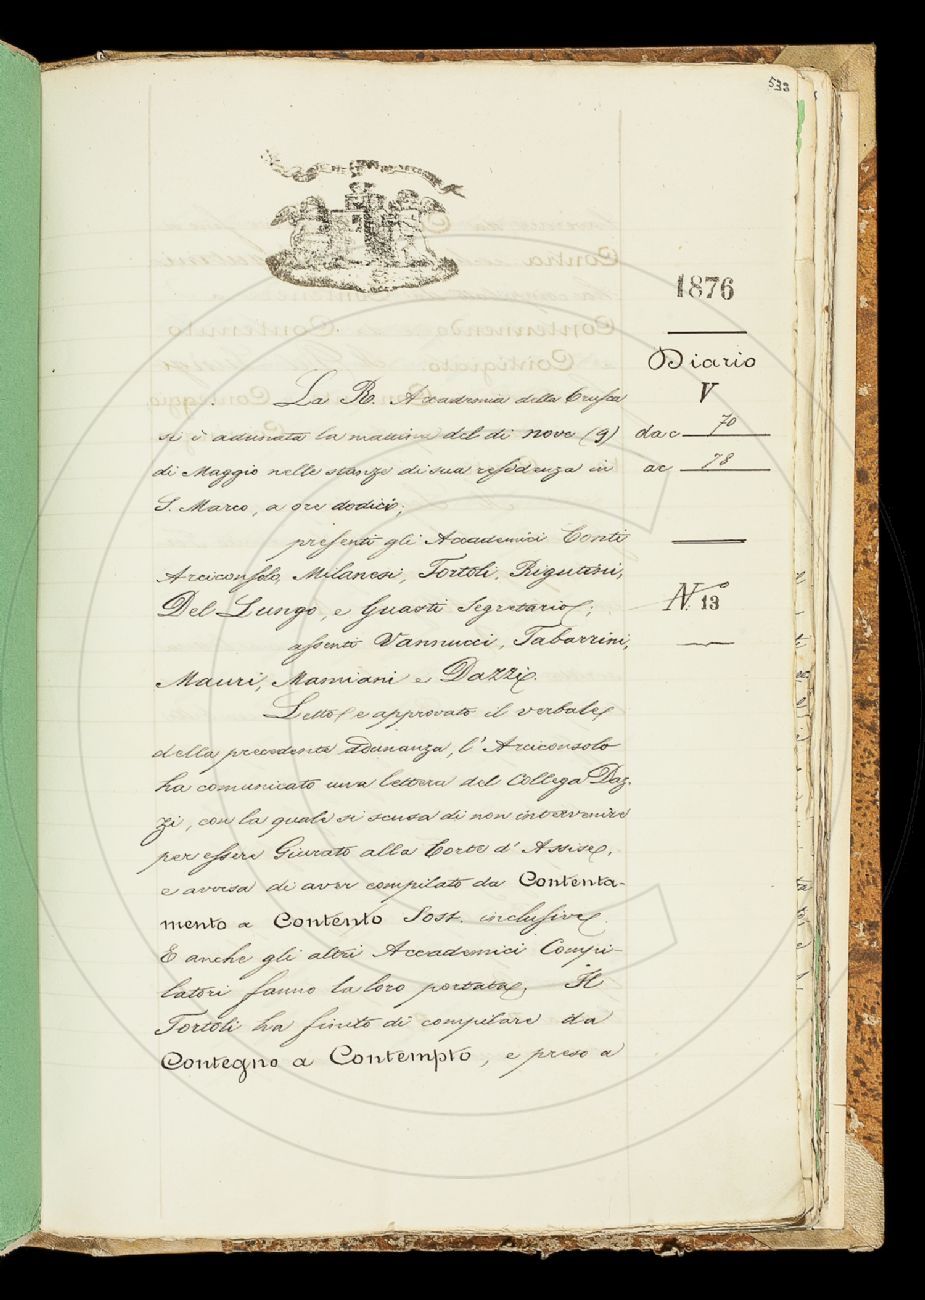 533
1876
Diario
V
da c 70
a c 78
N.° 13
La R. Accademia della Crusca
si è adunata la mattina del dì nove (9)
di Maggio nelle stanze di sua residenza in
S. Marco, a ore dodici;
presenti gli Accademici Conti
Arciconsolo, Milanesi, Tortoli, Rigutini,
Del Lungo, e Guasti Segretario;
assenti Vannucci, Tabarrini,
Mauri, Mamiani e Dazzi.
Letto e approvato il verbale
della precedente adunanza, l'Arciconsolo
ha comunicato una lettera del Collega Daz-
zi, con la quale si scusa di non intervenire
per essere Giurato alla Corte d'Assise,
e avvisa di aver compilato da Contenta-
mento a Contento Sost. inclusive.
E anche gli altri Accademici Compi-
latori fanno la loro portata. Il
Tortoli ha finito di compilare da
Contegno a Contempto, e preso a